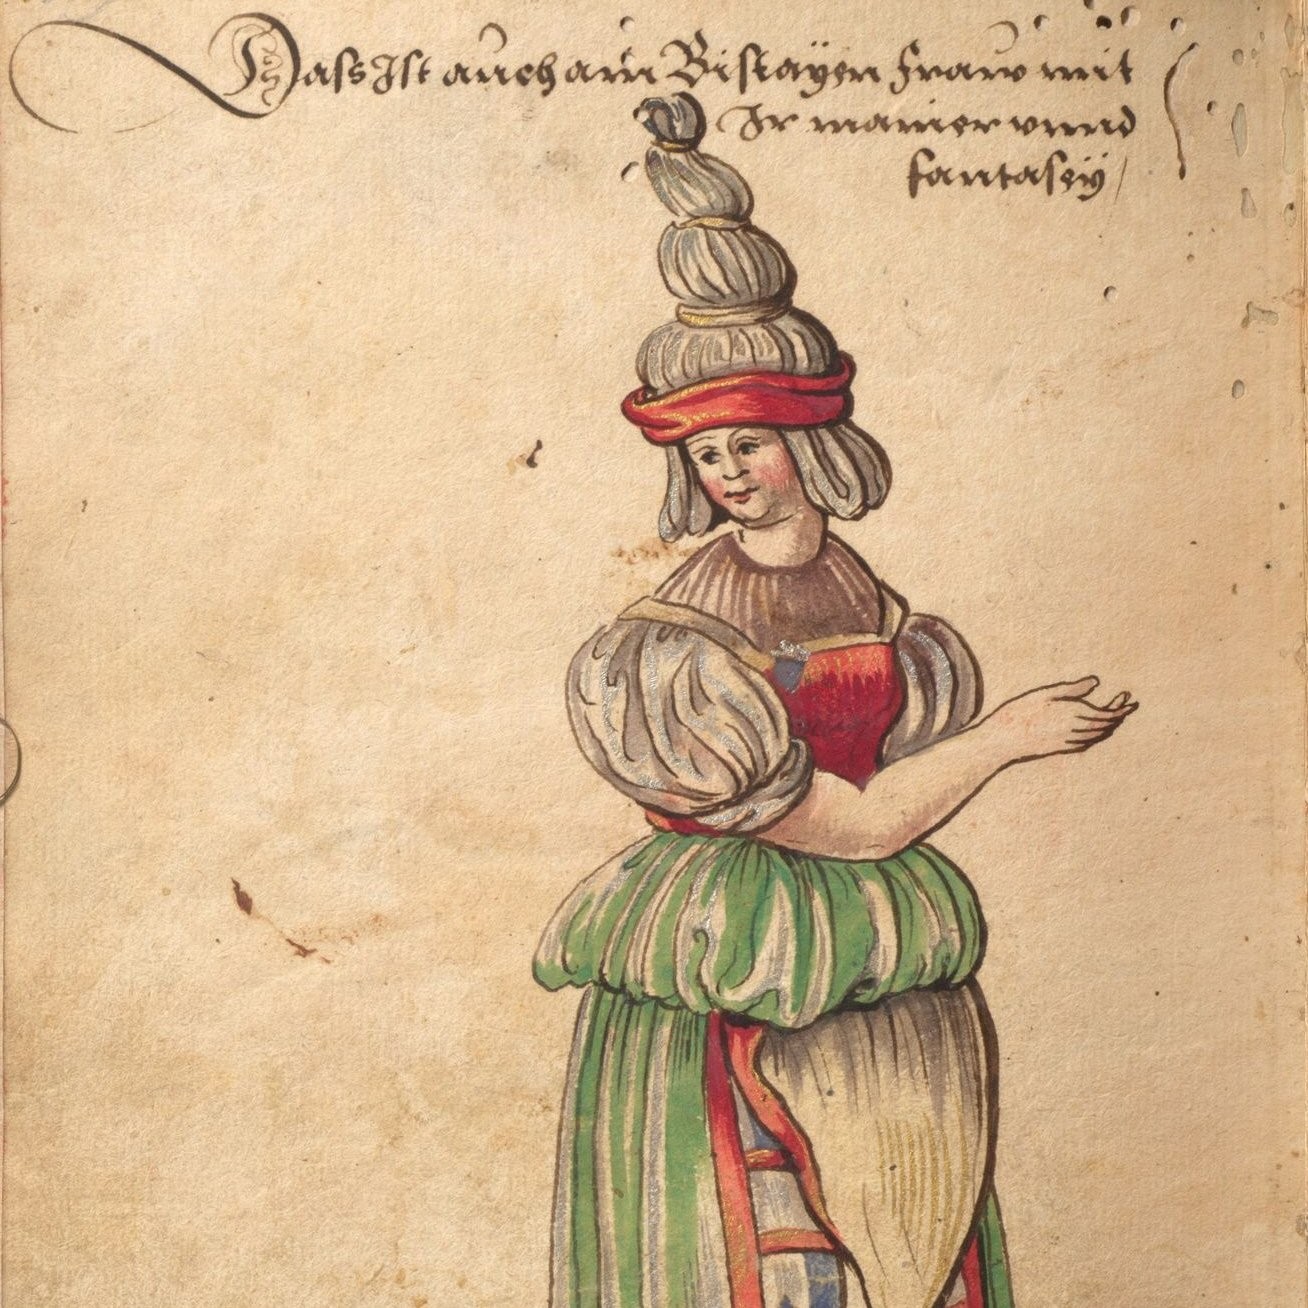 Dass Ist auch ain Biscayen fraw mit
Ir manier vnnd
fantaseÿ /